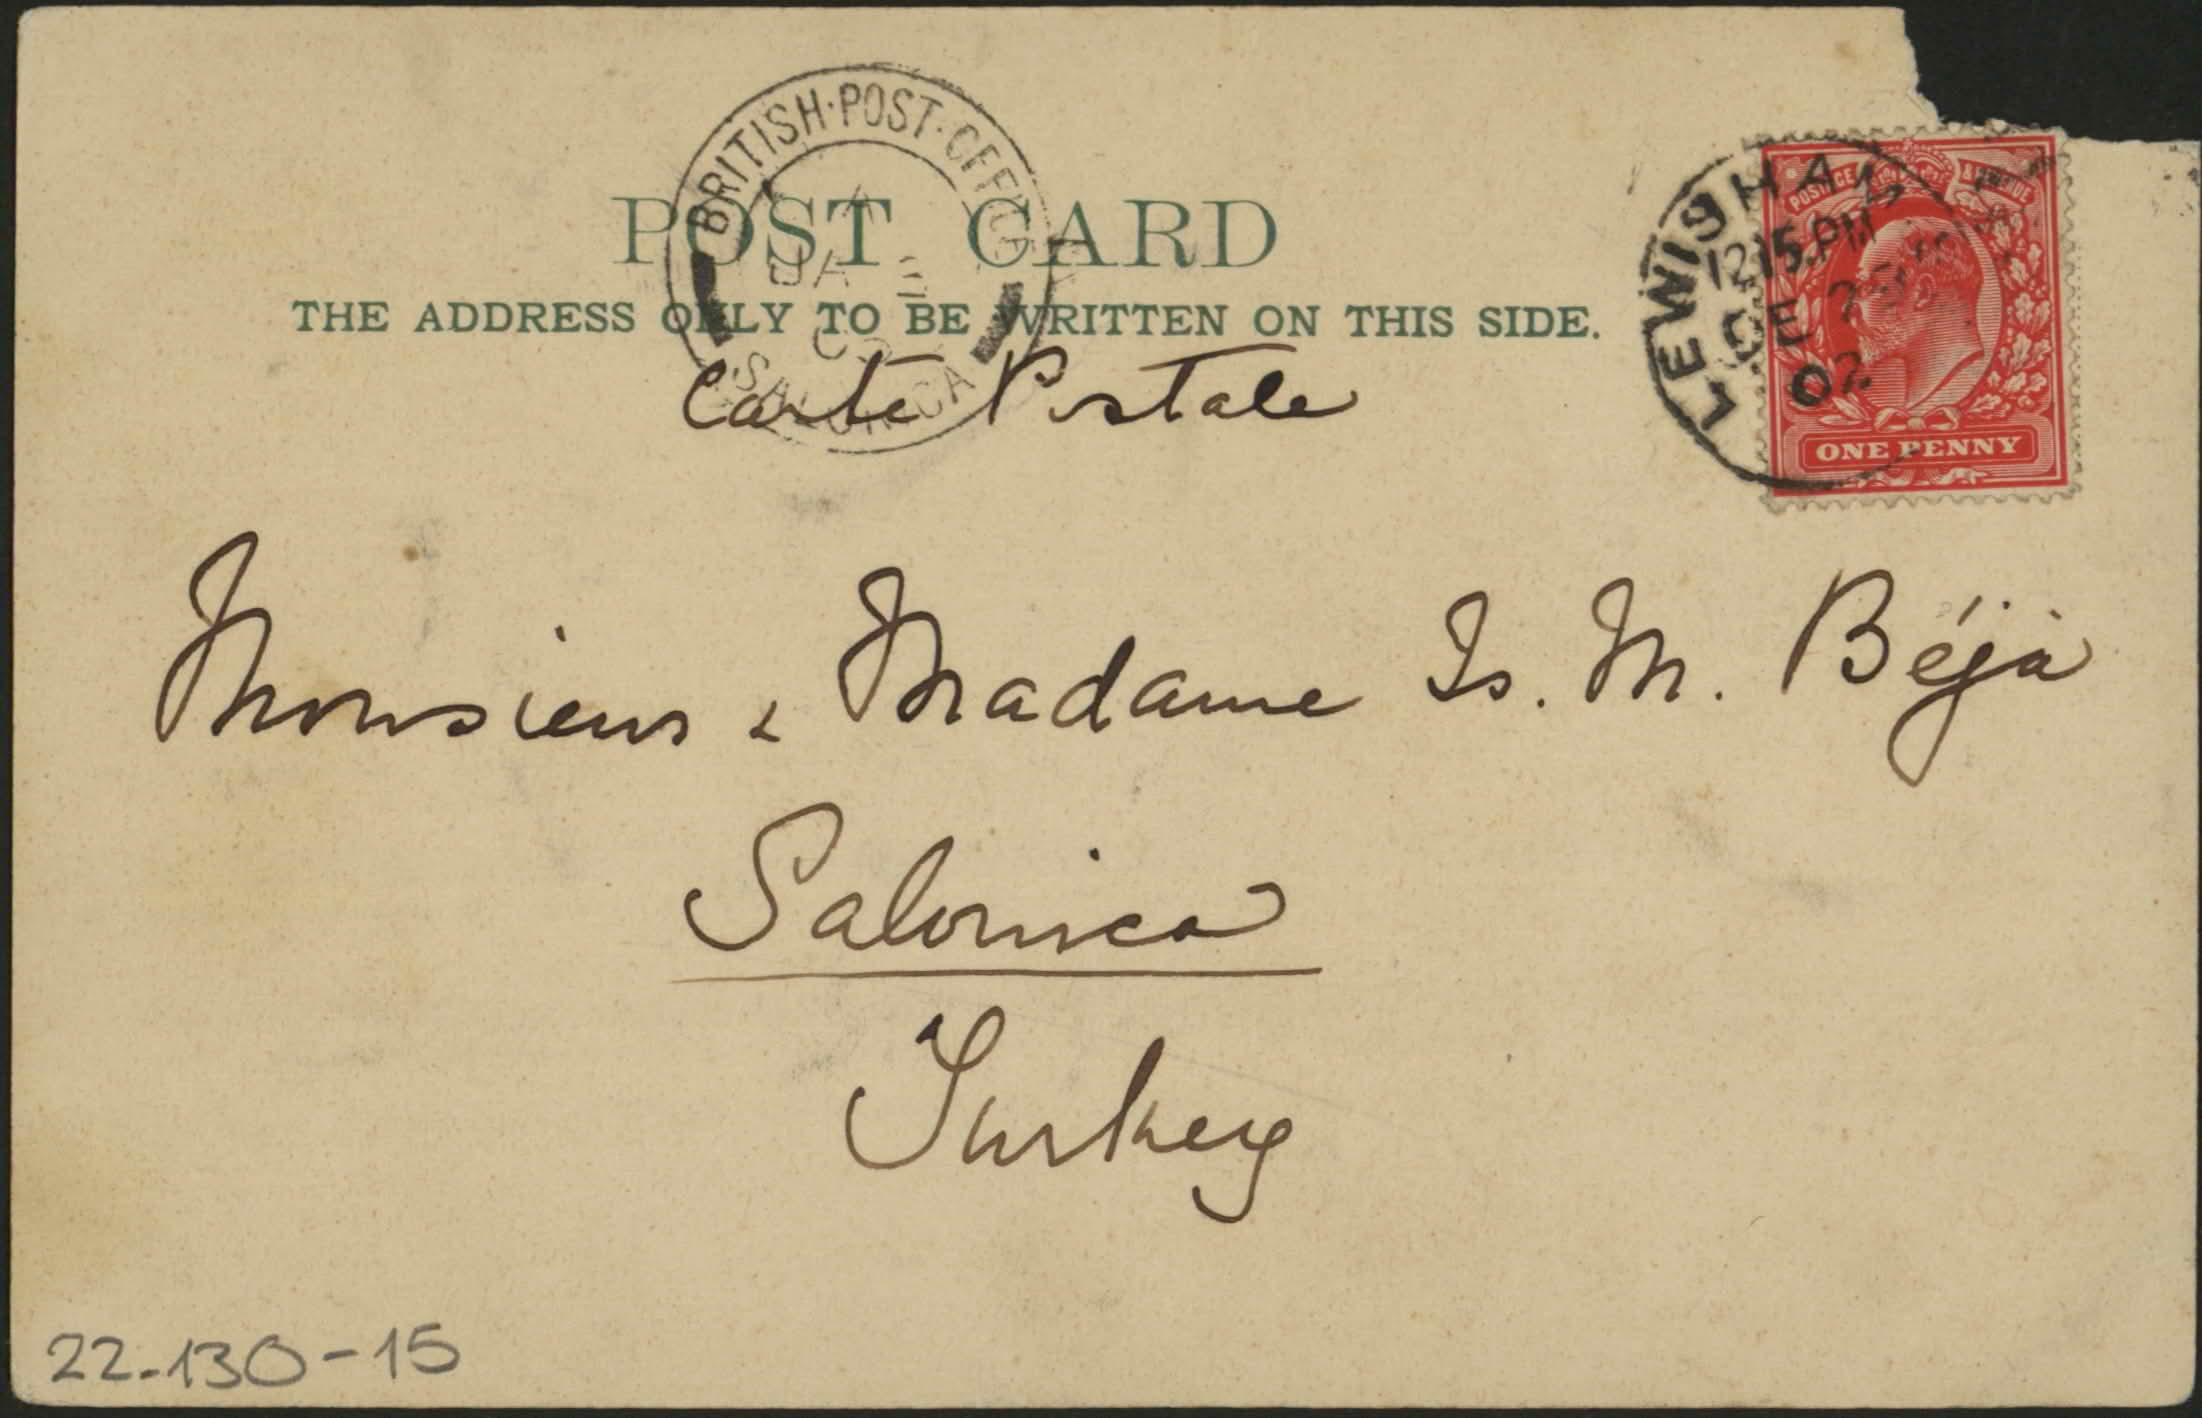 POST CARD
THE ADDRESS ONLY TO BE WRITTEN ON THIS SIDE.
BRITISH·POST·OFFICE
A
JA
03
SALONICA
LEWISHAM
12.15.PM
DE 2
02
POSTAGE & REVENUE
ONE PENNY
Carte Postale
Monsieur & Madame Is. M. Béja
Salonica
Turkey
22-130-15